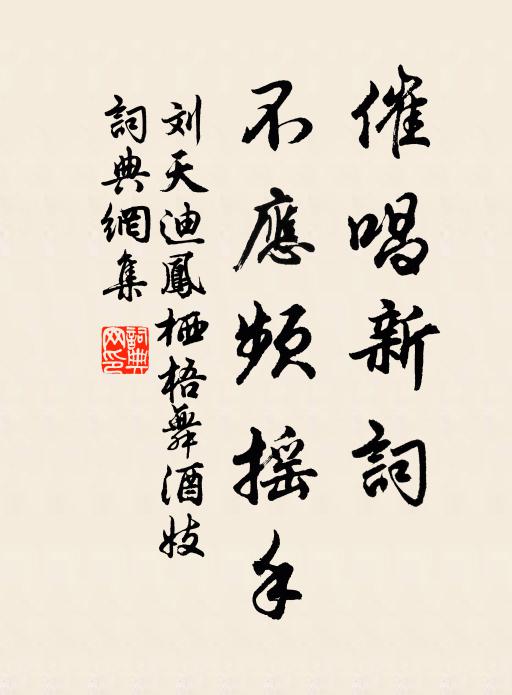 催唱新詞
不應頻搖手
刘天迪鳳栖梧舞酒妓
詞典網集
詞典網印